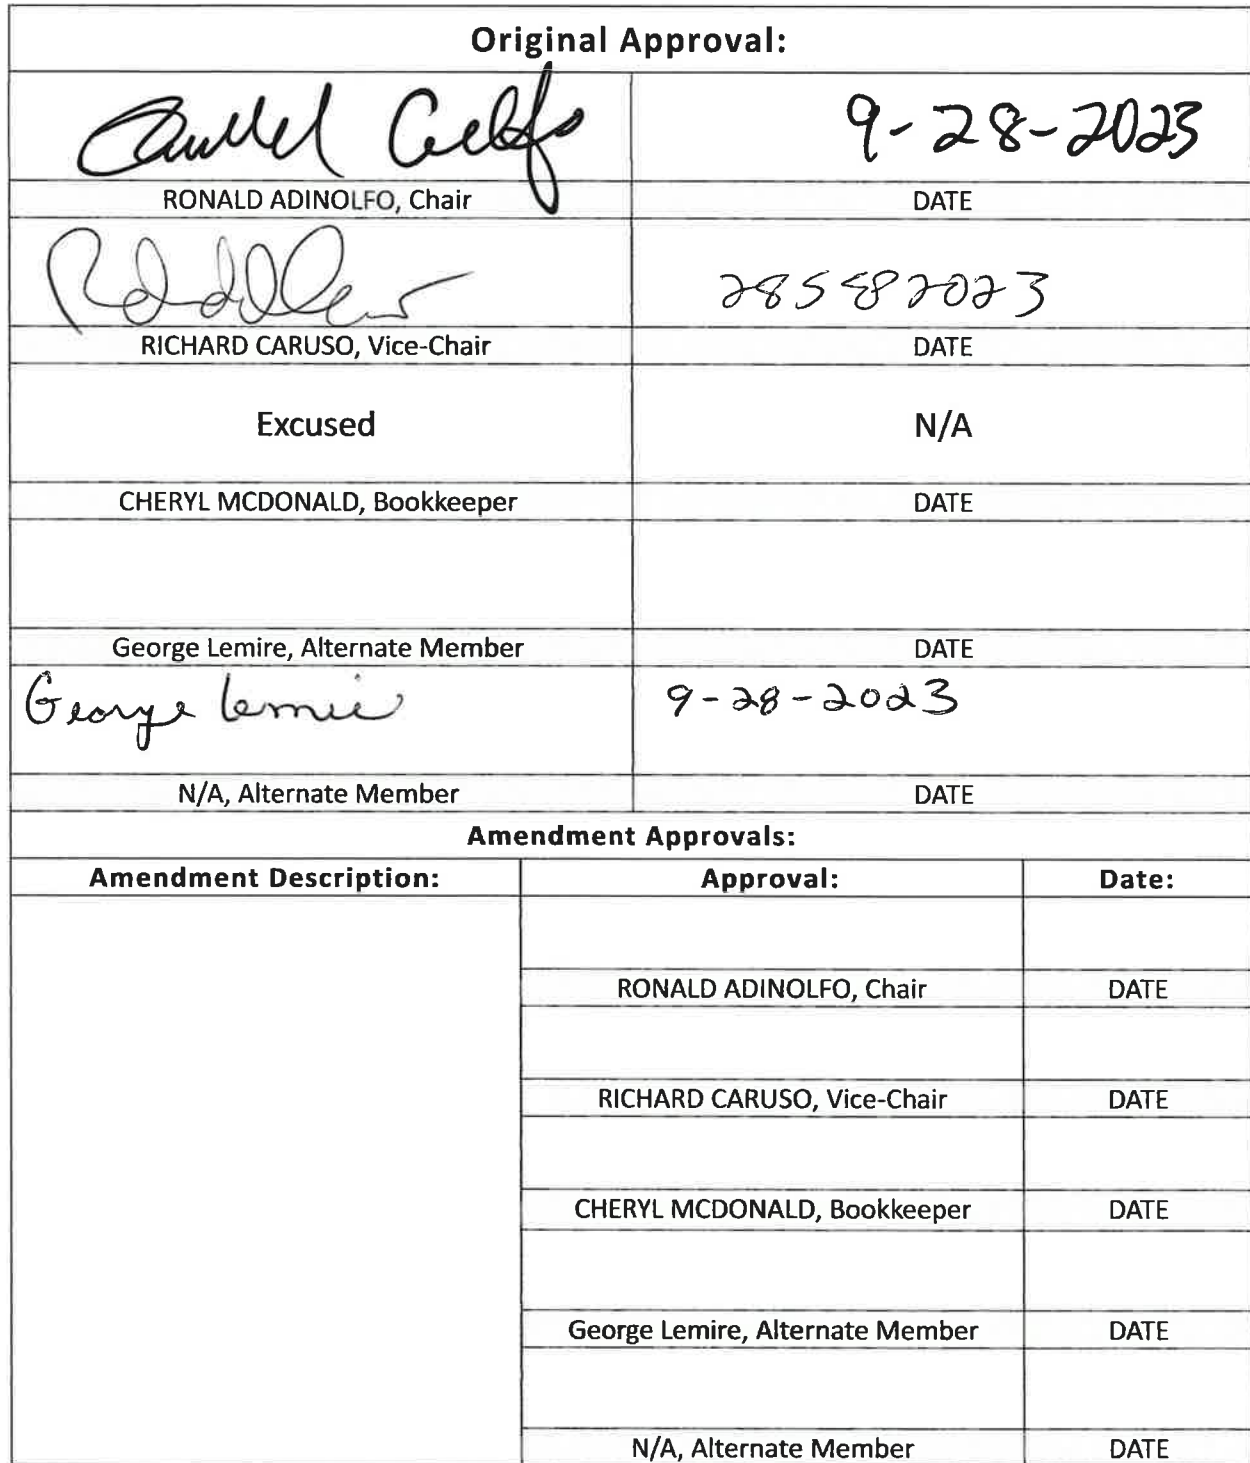 Original Approval:
9-28-2023
RONALD ADINOLFO, Chair DATE
28582023
RICHARD CARUSO, Vice-Chair DATE
Excused N/A
CHERYL MCDONALD, Bookkeeper DATE
George Lemire, Alternate Member DATE
George Lemire 9-28-2023
N/A, Alternate Member DATE
Amendment Approvals:
Amendment Description: Approval: Date:
RONALD ADINOLFO, Chair DATE
RICHARD CARUSO, Vice-Chair DATE
CHERYL MCDONALD, Bookkeeper DATE
George Lemire, Alternate Member DATE
N/A, Alternate Member DATE